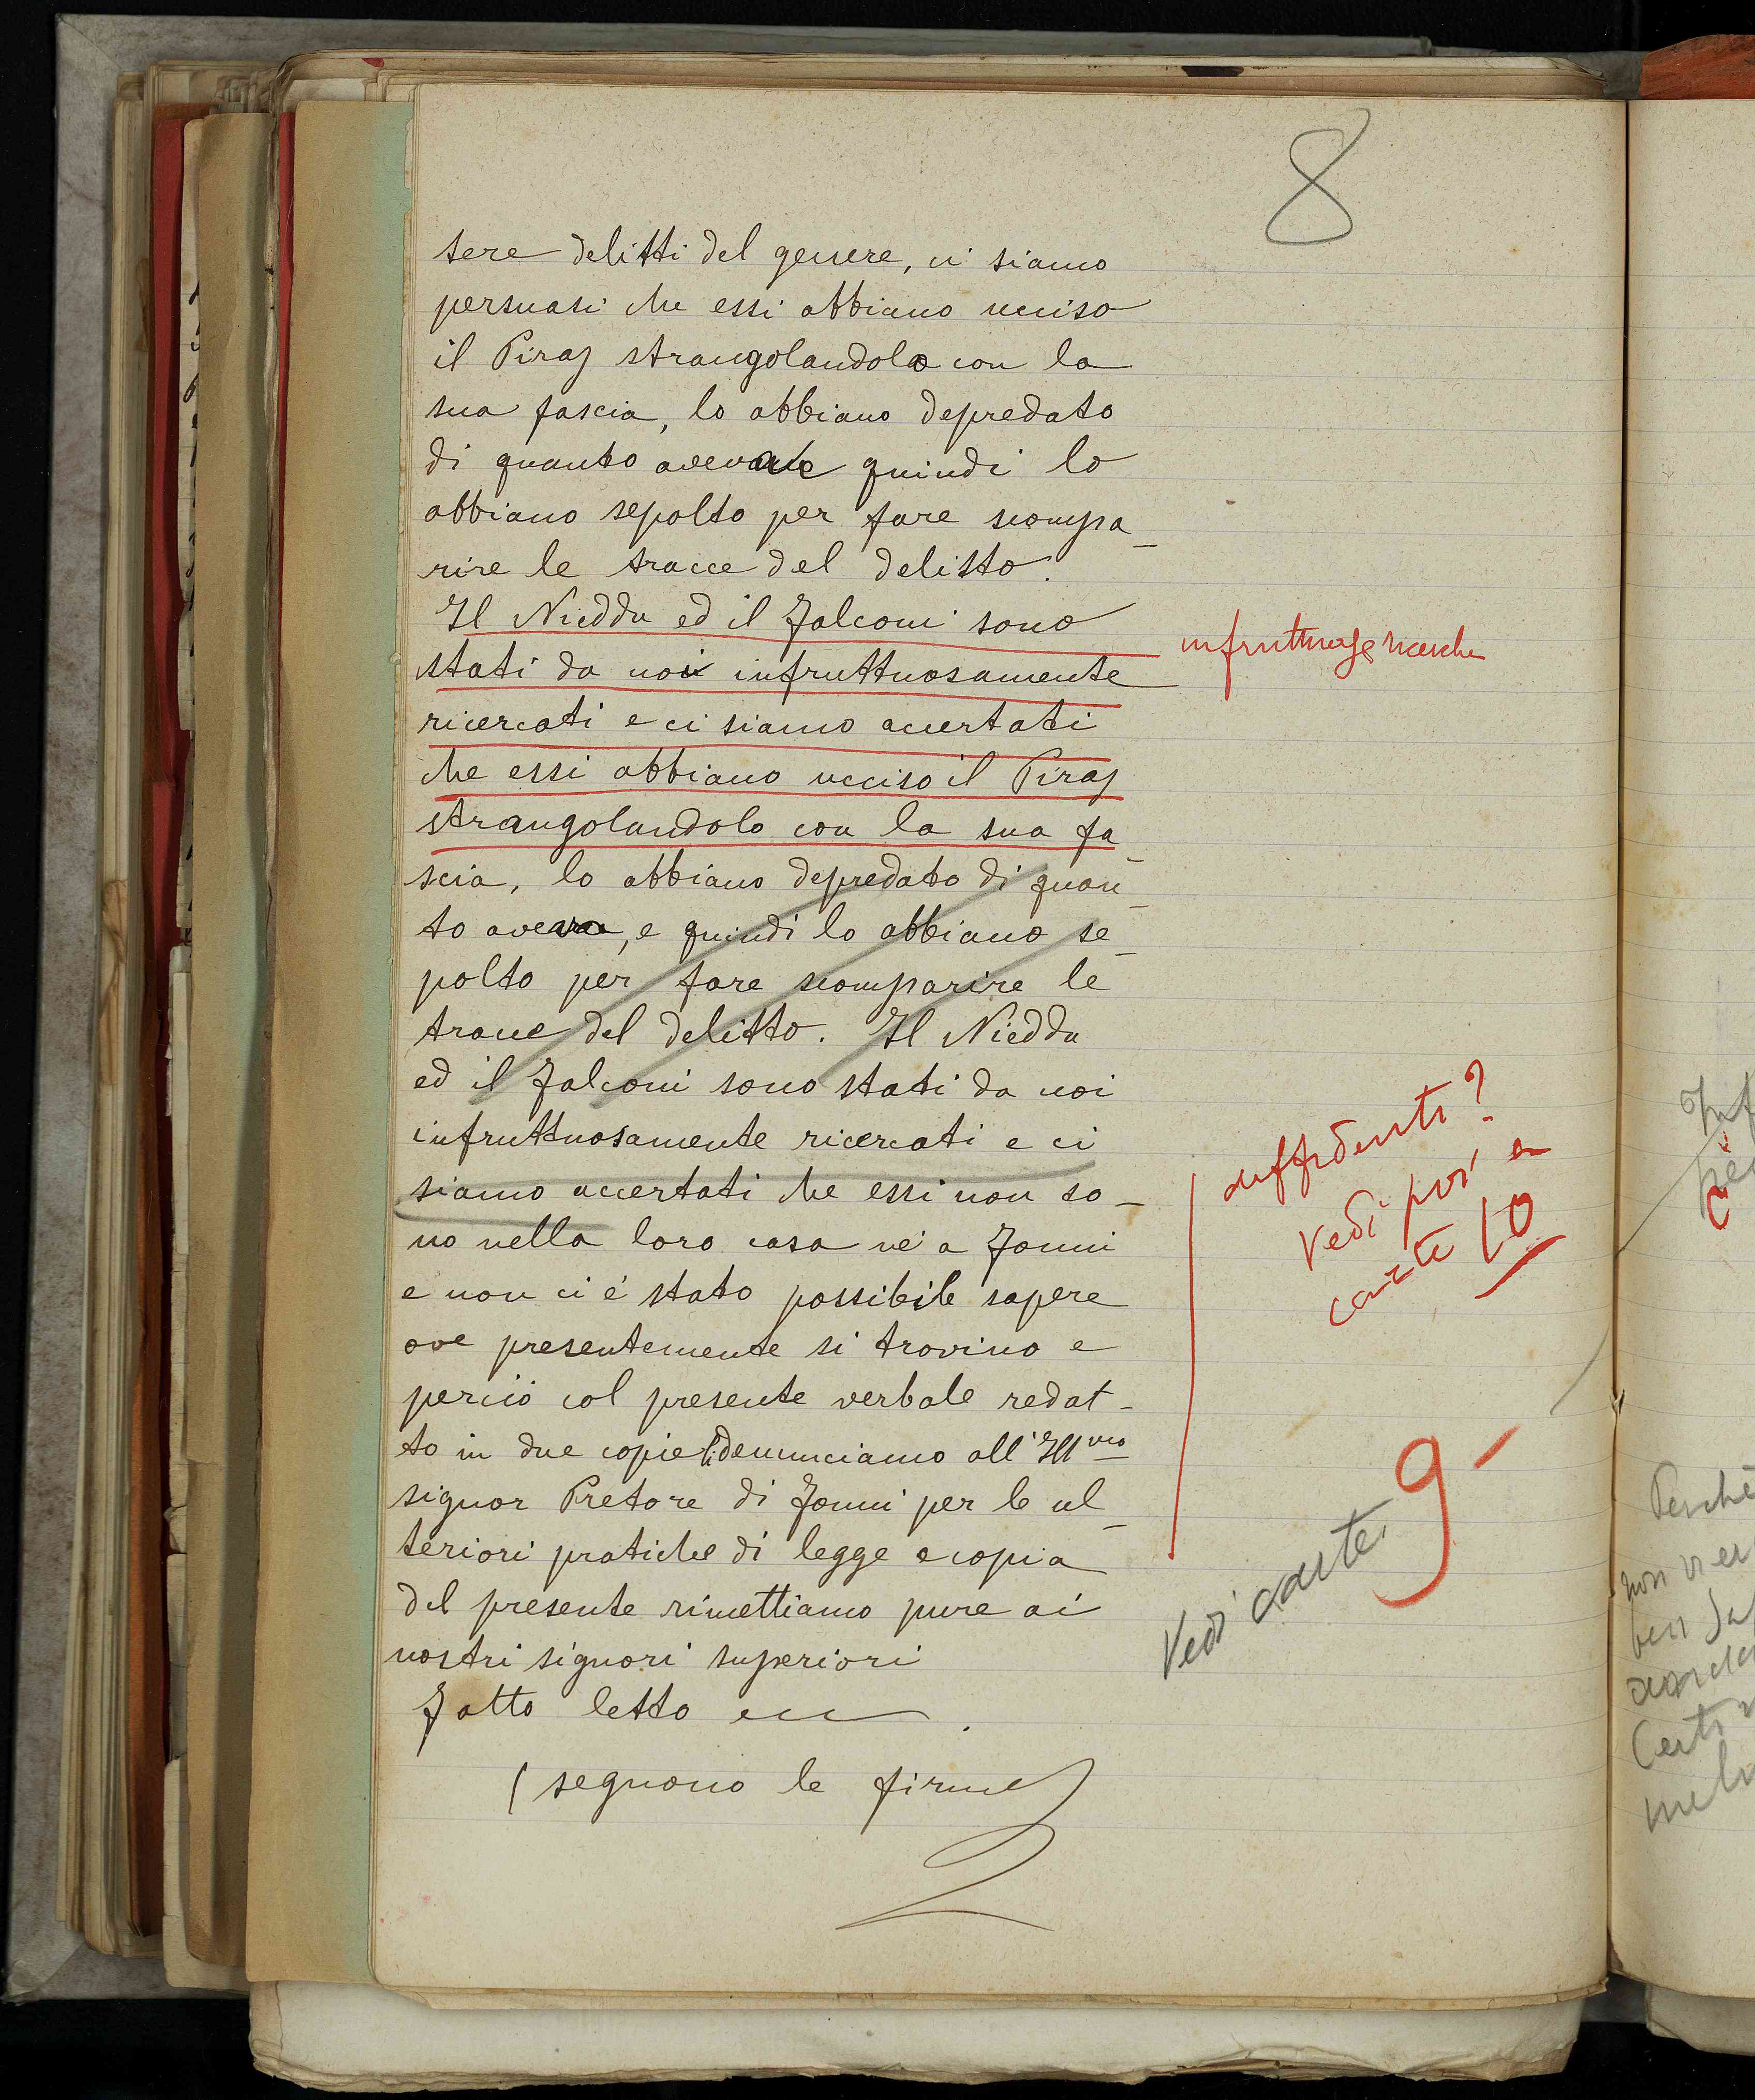 8
tere delitti del genere, ci siamo
persuasi che essi abbiano ucciso
il Piras strangolandolo con la
sua fascia, lo abbiano depredato
di quanto aveva e quindi lo
abbiano sepolto per fare scompa_
rire le tracce del delitto.
Il Nieddu ed il Falconi sono
stati da noi infruttuosamente
infruttuose ricerche
ricercati e ci siamo accertati
che essi abbiano ucciso il Piras
strangolandolo con la sua fa_
scia, lo abbiano depredato di quan_
to aveva, e quindi lo abbiano se_
polto per fare scomparire le
tracce del delitto. Il Nieddu
ed il Falconi sono stati da noi
infruttuosamente ricercati e ci
siamo accertati che essi non so_
no nella loro casa nè a Fonni
e non ci è stato possibile sapere
ove presentemente si trovino e
perciò col presente verbale redat_
to in due copie li denunciamo all'Illmo
signor Pretore di Fonni per le ul_
teriori pratiche di legge e copia
del presente rimettiamo pure ai
nostri signori superiori
Fatto letto ecc.
(seguono le firme)
diffidenti?
Vedi poi a
carte 10
Vedi carte 9
Perchè
non
Certo